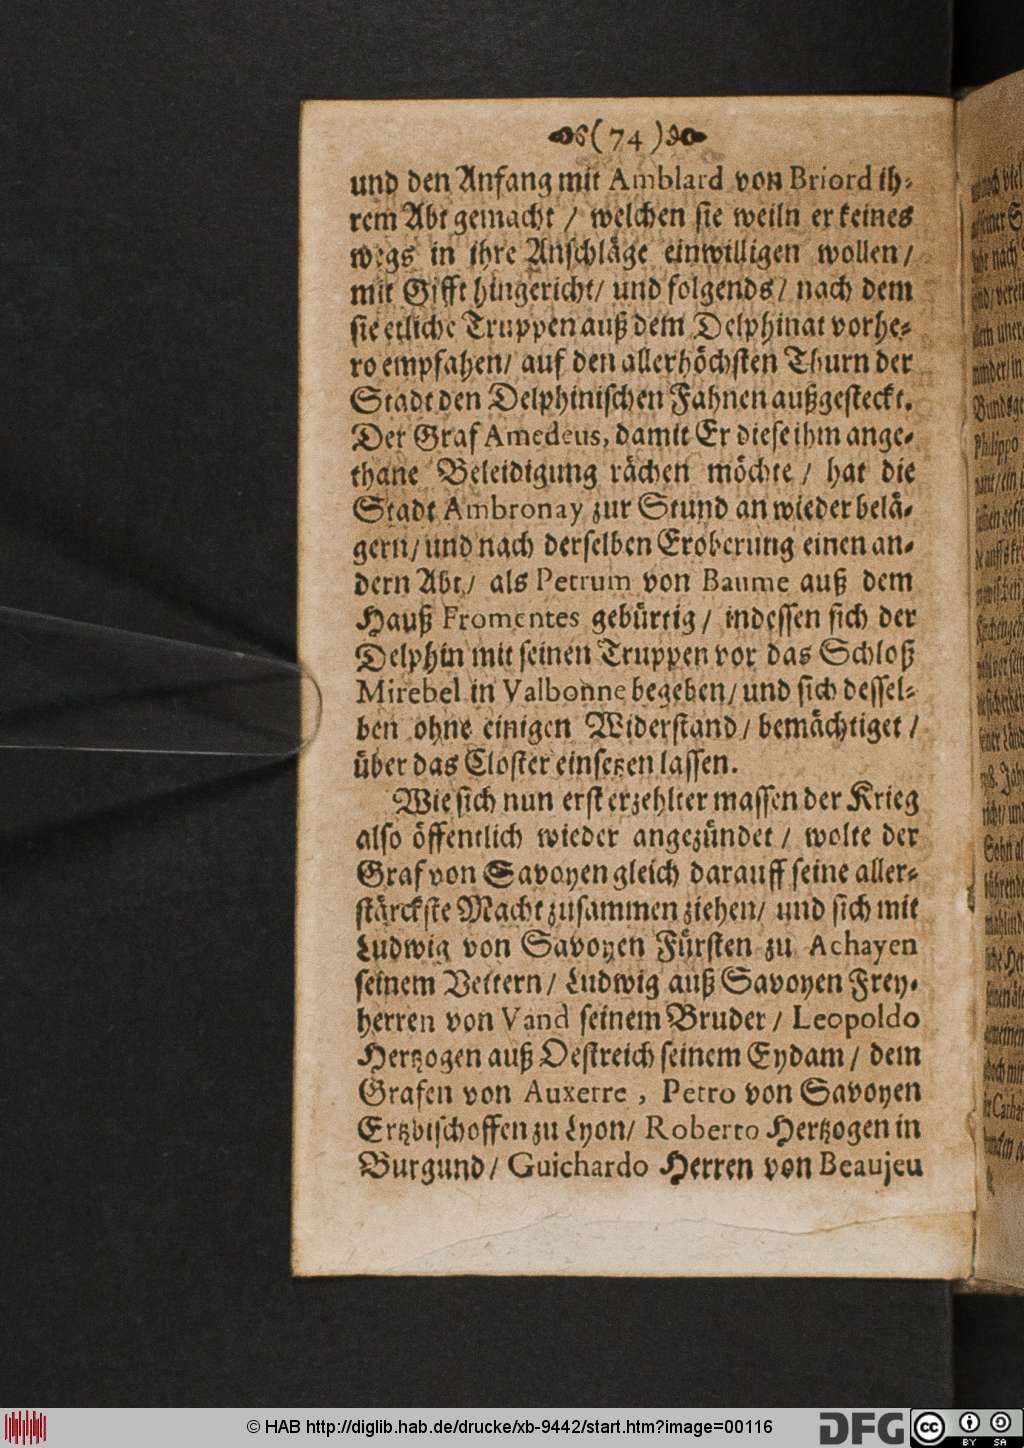 (74)
und den Anfang mit Amblard von Briord ih-
rem Abt gemacht / welchen sie weiln er keines
wegs in ihre Anschläge einwilligen wollen /
mit Gifft hingericht / und folgends / nach dem
sie etliche Truppen auß dem Delphinat vorhe-
ro empfahen / auf den allerhöchsten Thurn der
Stadt den Delphinischen Fahnen außgesteckt.
Der Graf Amedeus, damit Er diese ihm ange-
thane Beleidigung rächen möchte / hat die
Stadt Ambronay zur Stund an wieder belä-
gern / und nach derselben Eroberung einen an-
dern Abt / als Petrum von Baume auß dem
Hauß Fromentes gebürtig / indessen sich der
Delphin mit seinen Truppen vor das Schloß
Mirebel in Valbonne begeben / und sich dessel-
ben ohne einigen Widerstand / bemächtiget /
über das Closter einsetzen lassen.
Wie sich nun erst erzehlter massen der Krieg
also öffentlich wieder angezündet / wolte der
Graf von Savoyen gleich darauff seine aller-
stärckste Macht zusammen ziehen / und sich mit
Ludwig von Savoyen Fürsten zu Achayen
seinem Vettern / Ludwig auß Savoyen Frey-
herren von Vand seinem Bruder / Leopoldo
Hertzogen auß Oestreich seinem Eydam / dem
Grafen von Auxerre, Petro von Savoyen
Ertzbischoffen zu Lyon / Roberto Hertzogen in
Burgund / Guichardo Herren von Beaujeu
© HAB http://diglib.hab.de/drucke/xb-9442/start.htm?image=00116
DFG
cc
BY SA